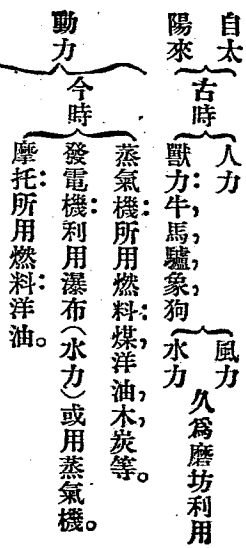 動力
自太
陽來
古時
人力
獸力:牛,馬,驢,象,狗
風力
水力
久爲磨坊利用
今時
蒸氣機:所用燃料:煤,洋油,木炭等。
發電機:利用瀑布(水力)或用蒸氣機。
摩托所用燃料:洋油。